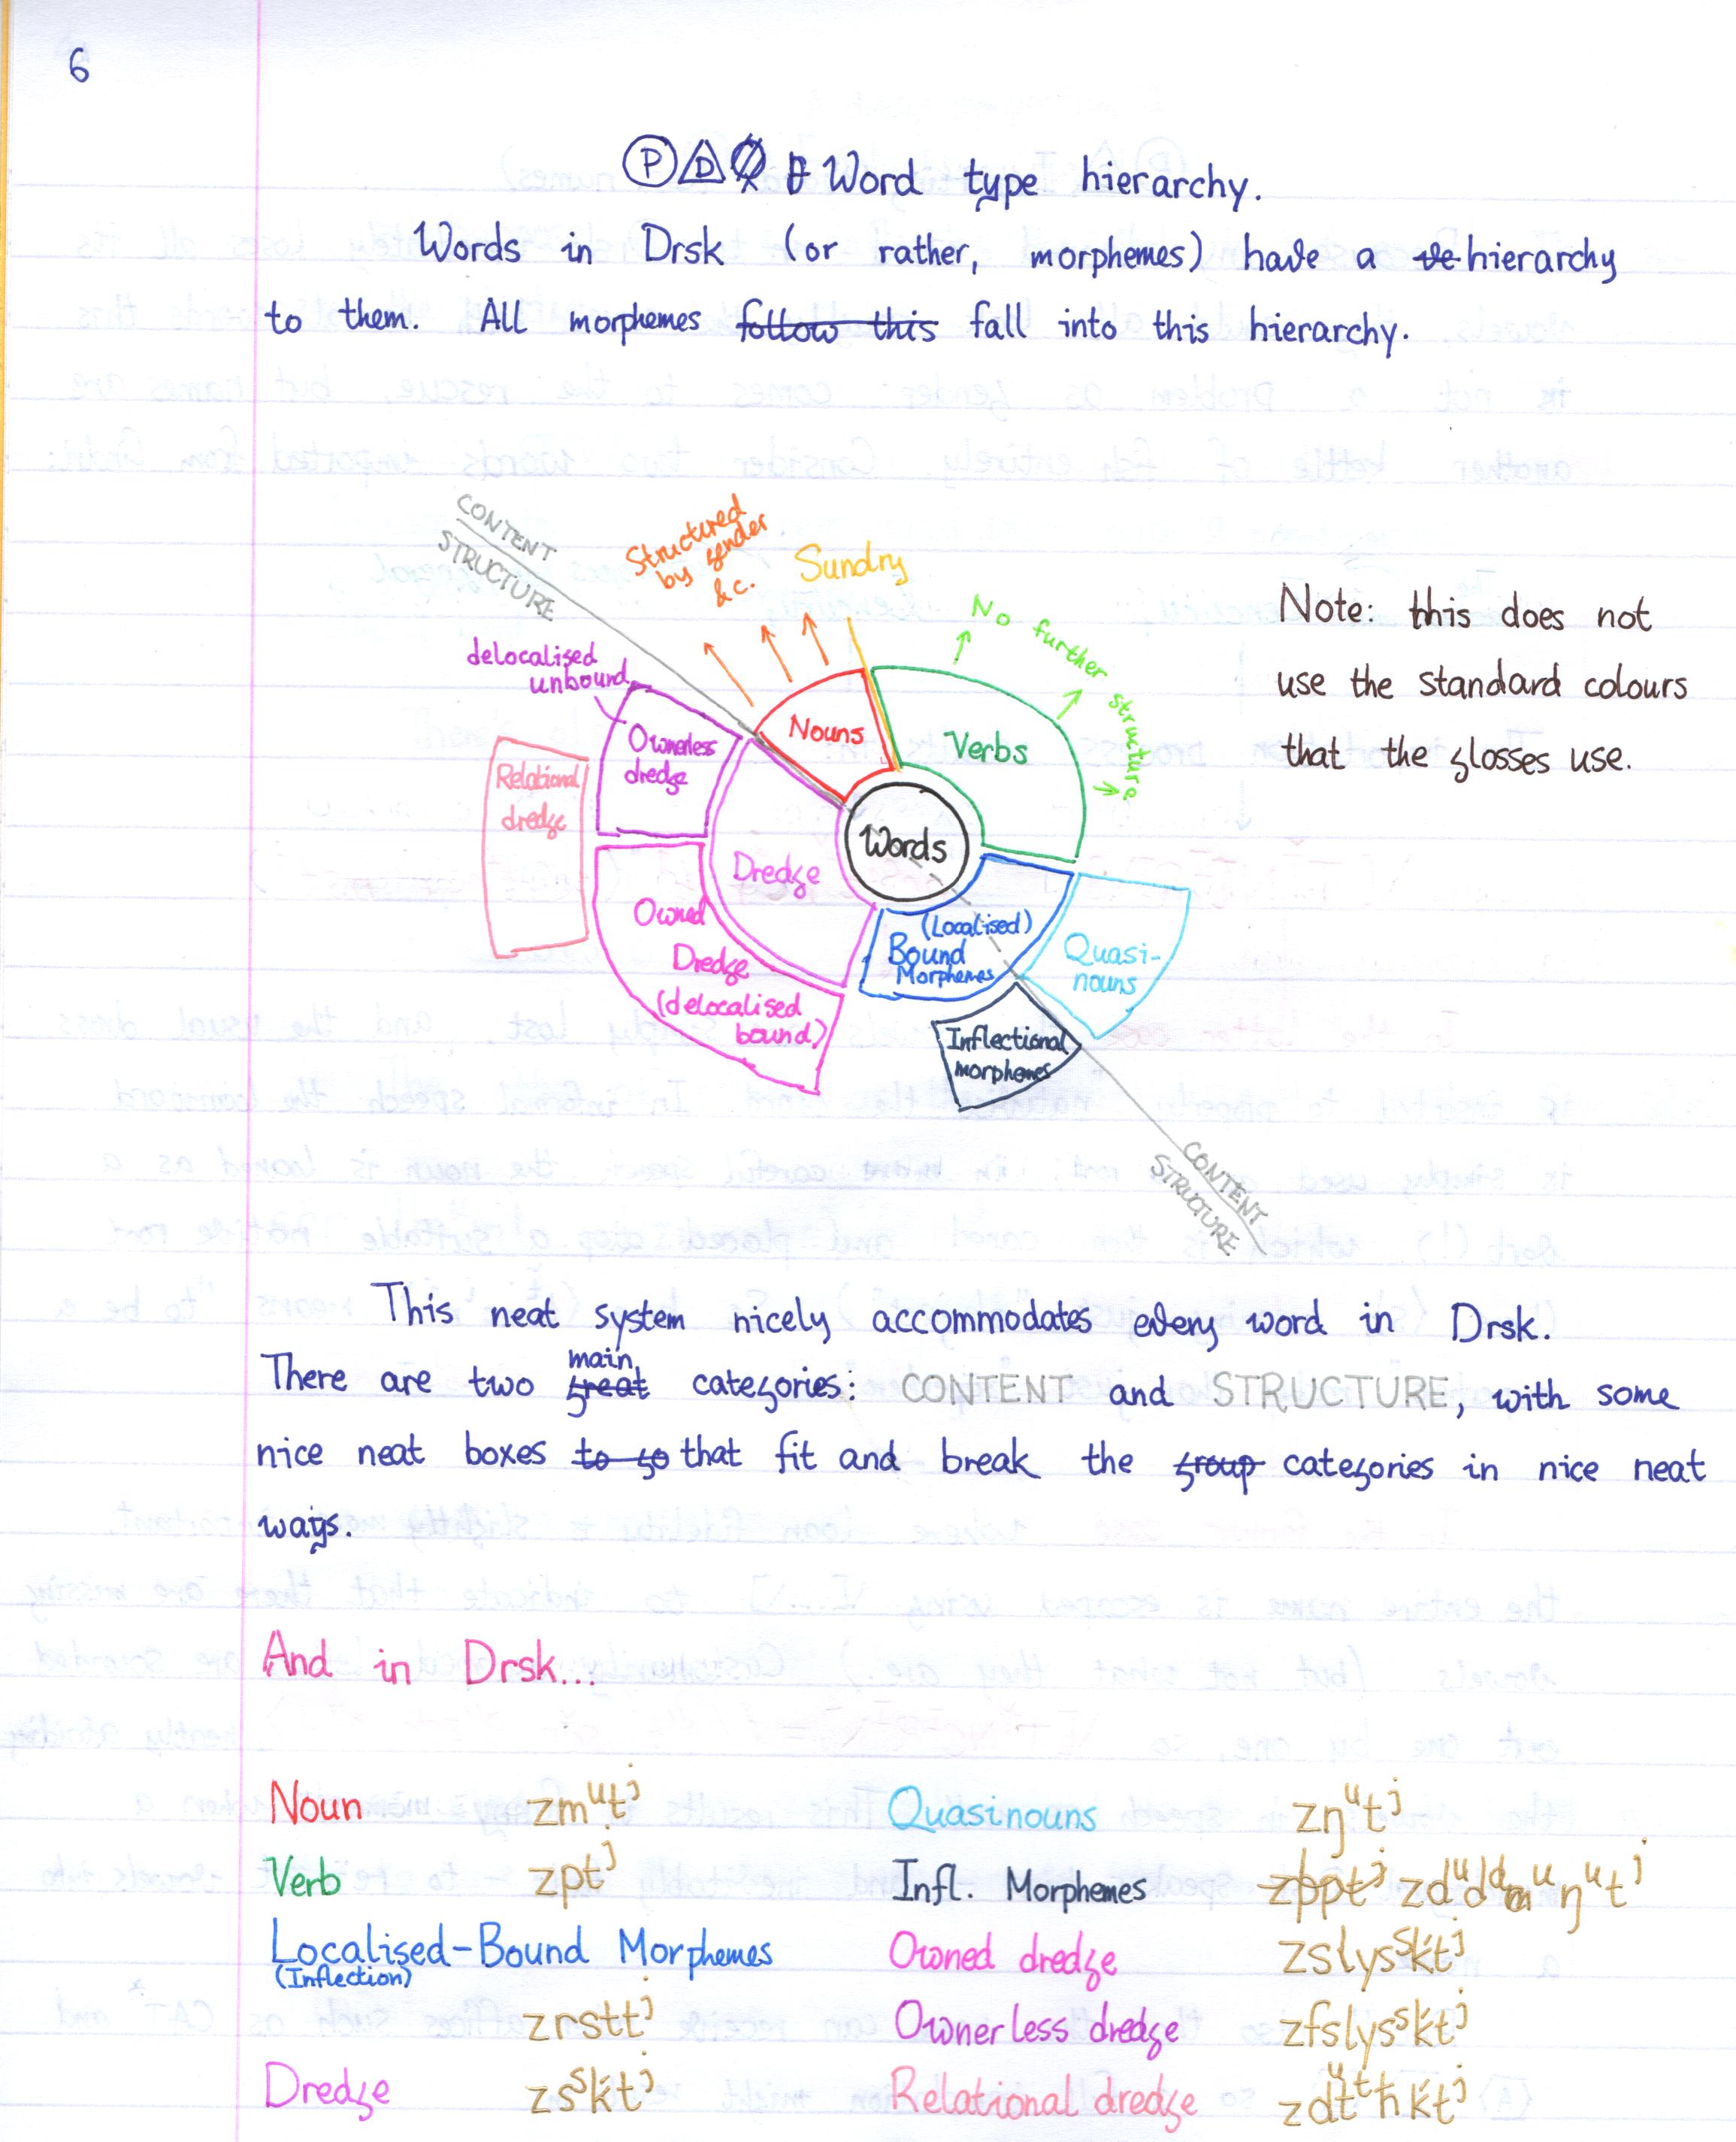 6
Ⓟ D Word type hierarchy.
Words in Drsk (or rather, morphemes) have a ve hierarchy
to them. All morphemes follow this fall into this hierarchy.
CONTENT
STRUCTURE
Structured
by gender
&c.
Sundry
No further structure
Note: this does not
use the standard colours
that the glosses use.
delocalised
unbound
Ownerless
dredge
Relational
dredge
Nouns
Verbs
Words
Dredge
Owned
Dredge
(delocalised
bound)
(Localised)
Bound
Morphemes
Quasi-
nouns
Inflectional
morphemes
CONTENT
STRUCTURE
This neat system nicely accommodates every word in Drsk.
There are two great main categories: CONTENT and STRUCTURE, with some
nice neat boxes to go that fit and break the group categories in nice neat
ways.
And in Drsk...
Noun zmᵘtʲ Quasinouns zŋᵘtʲ
Verb zptʲ Infl. Morphemes
Localised-Bound Morphemes
(Inflection)
zrsttʲ
Owned dredge zslysˢḱtʲ
Ownerless dredge zfslysˢḱtʲ
Dredge zsˢḱtʲ Relational dredge